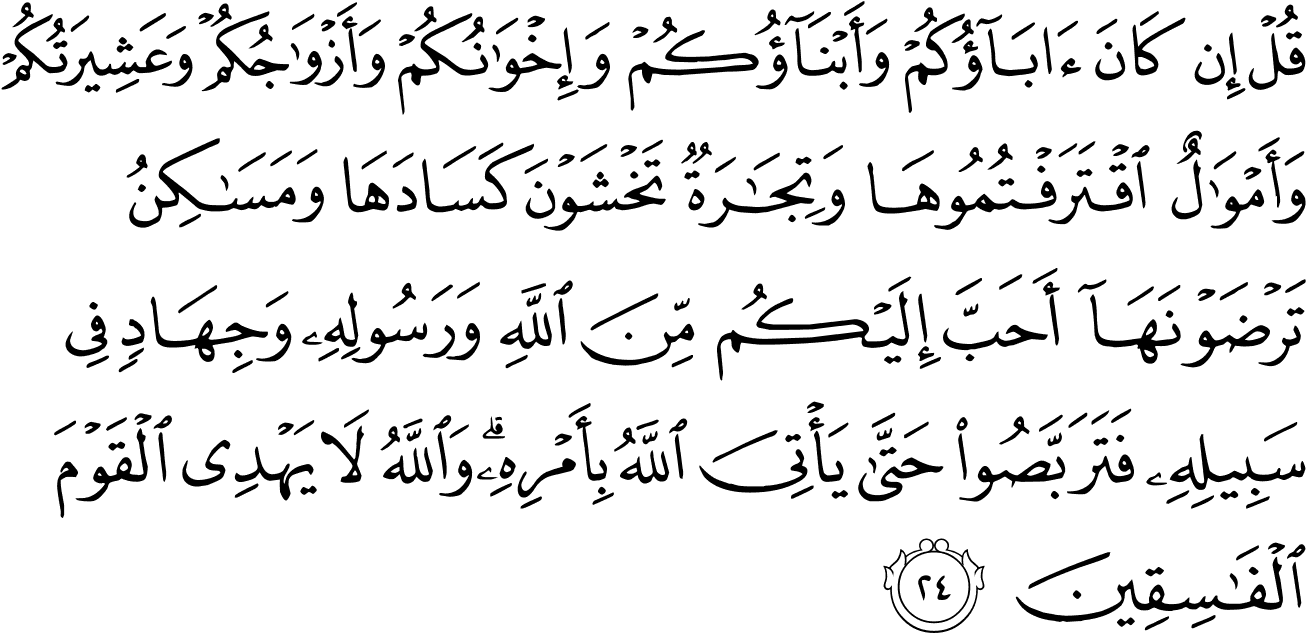 قُلۡ إِن كَانَ ءَابَآؤُكُمۡ وَأَبۡنَآؤُكُمۡ وَإِخۡوَٰنُكُمۡ وَأَزۡوَٰجُكُمۡ وَعَشِيرَتُكُمۡ
وَأَمۡوَٰلٌ ٱقۡتَرَفۡتُمُوهَا وَتِجَٰرَةٞ تَخۡشَوۡنَ كَسَادَهَا وَمَسَٰكِنُ
تَرۡضَوۡنَهَآ أَحَبَّ إِلَيۡكُم مِّنَ ٱللَّهِ وَرَسُولِهِۦ وَجِهَادٖ فِي
سَبِيلِهِۦ فَتَرَبَّصُواْ حَتَّىٰ يَأۡتِيَ ٱللَّهُ بِأَمۡرِهِۦۗ وَٱللَّهُ لَا يَهۡدِي ٱلۡقَوۡمَ
ٱلۡفَٰسِقِينَ ٢٤